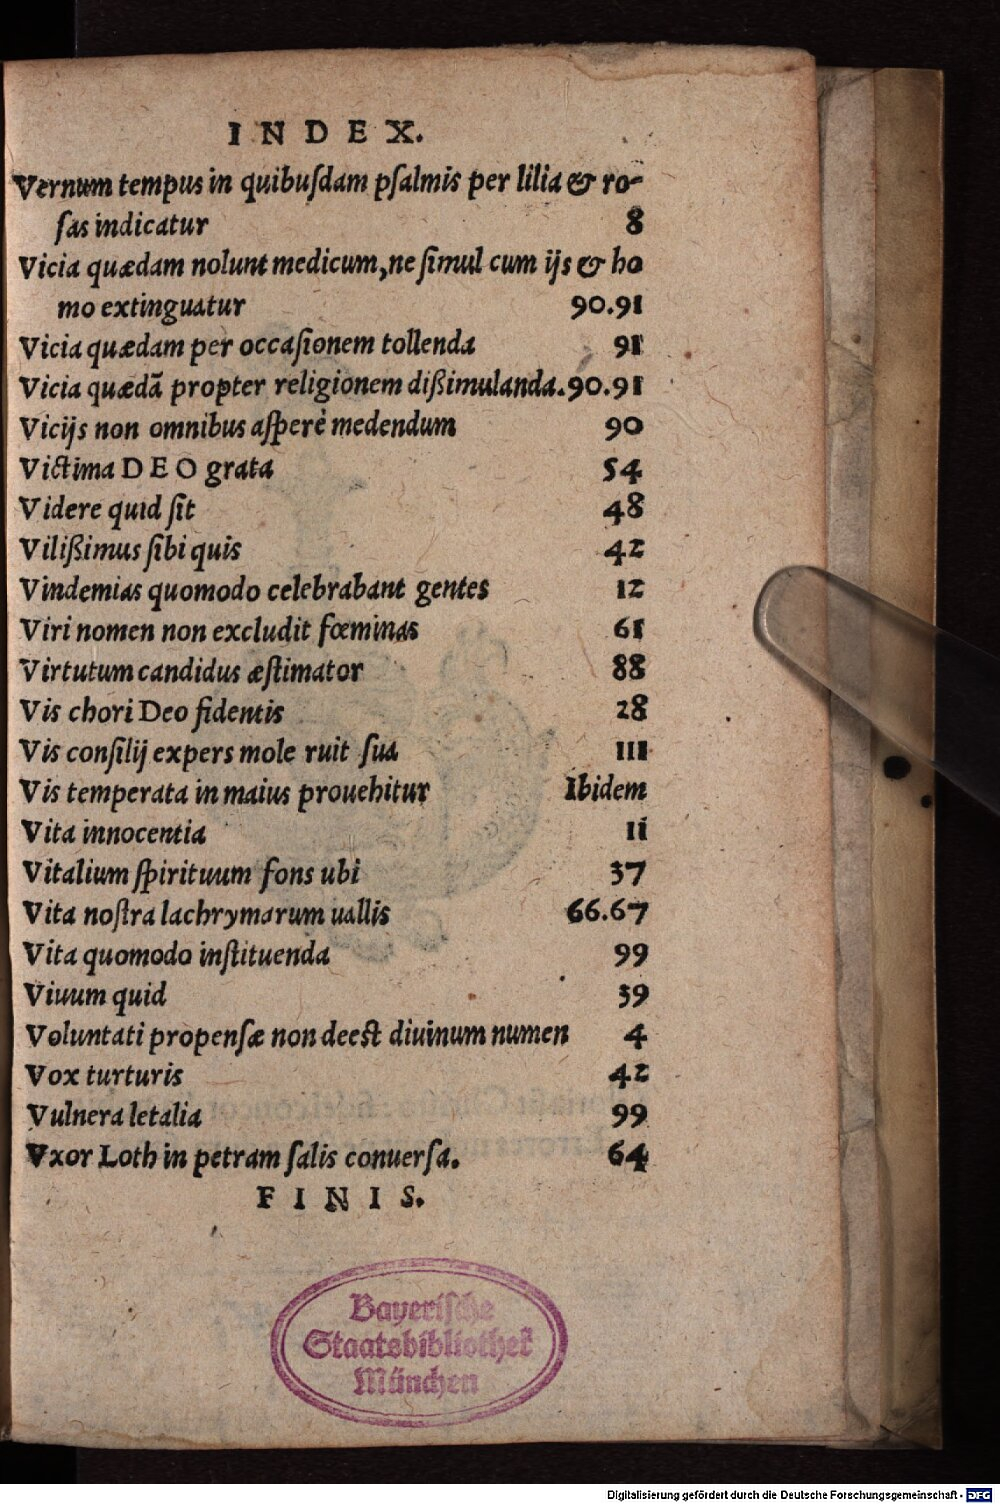 INDEX.
Vernum tempus in quibuſdam pſalmis per lilia & ro-
ſas indicatur 8
Vicia quædam nolunt medicum, ne ſimul cum ijs & ho
mo extinguatur 90.91
Vicia quædam per occaſionem tollenda 91
Vicia quædã propter religionem dißimulanda. 90.91
Vicijs non omnibus aſperè medendum 90
Victima DEO grata 54
Videre quid ſit 48
Vilißimus ſibi quis 42
Vindemias quomodo celebrabant gentes 12
Viri nomen non excludit fœminas 61
Virtutum candidus æſtimator 88
Vis chori Deo fidentis 28
Vis conſilij expers mole ruit ſua 111
Vis temperata in maius prouehitur Ibidem
Vita innocentia 11
Vitalium ſpirituum fons ubi 37
Vita noſtra lachrymarum uallis 66.67
Vita quomodo inſtituenda 99
Viuum quid 39
Voluntati propenſæ non deest diuinum numen 4
Vox turturis 42
Vulnera letalia 99
Vxor Loth in petram ſalis conuerſa. 64
FINIS.
Bayerische
Staatsbibliothek
München
Digitalisierung gefördert durch die Deutsche Forschungsgemeinschaft - DFG